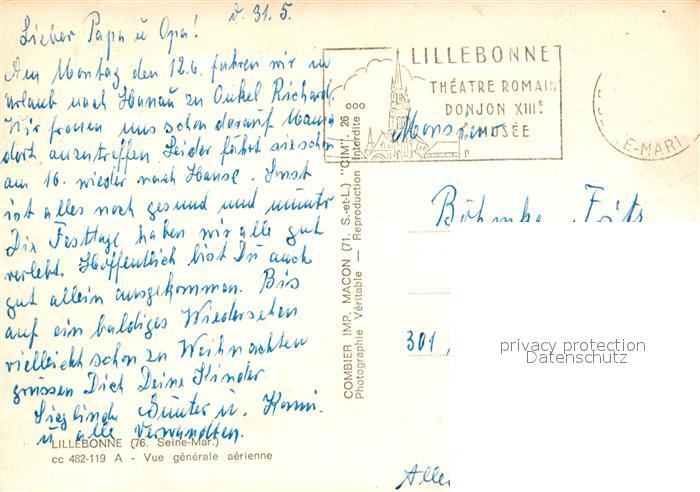 v. 31.5.
Lieber Papa u Opa!
Am Montag den 12.6. fahren wir in
Urlaub nach Hanau zu Onkel Richard,
Wir freuen uns schon darauf Mama
dort anzutreffen Leider fährt sie schon
am 16. wieder nach Hause. Sonst
ist alles noch gesund und munter
Die Festtage haben wir alle gut
verlebt. Hoffentlich bist Du auch
gut allein ausgekommen. Bis
auf ein baldiges Wiedersehen
vielleicht schon zu Weihnachten
grüssen Dich Deine Kinder
Sieglinde Günter u.
u alle Verwandten.
LILLEBONNE (76. Seine-Mar.)
cc 482-119 A - Vue générale aérienne
COMBIER IMP. MACON (71. S.-et-L.) "CIM". 26 ooo
Photographie Véritable — Reproduction Interdite
LILLEBONNE
THÉATRE ROMAIN
DONJON XIIIE
MUSÉE
E-MARI
Monsieur
Böhmke Fritz
301
privacy protection
Datenschutz
Alle